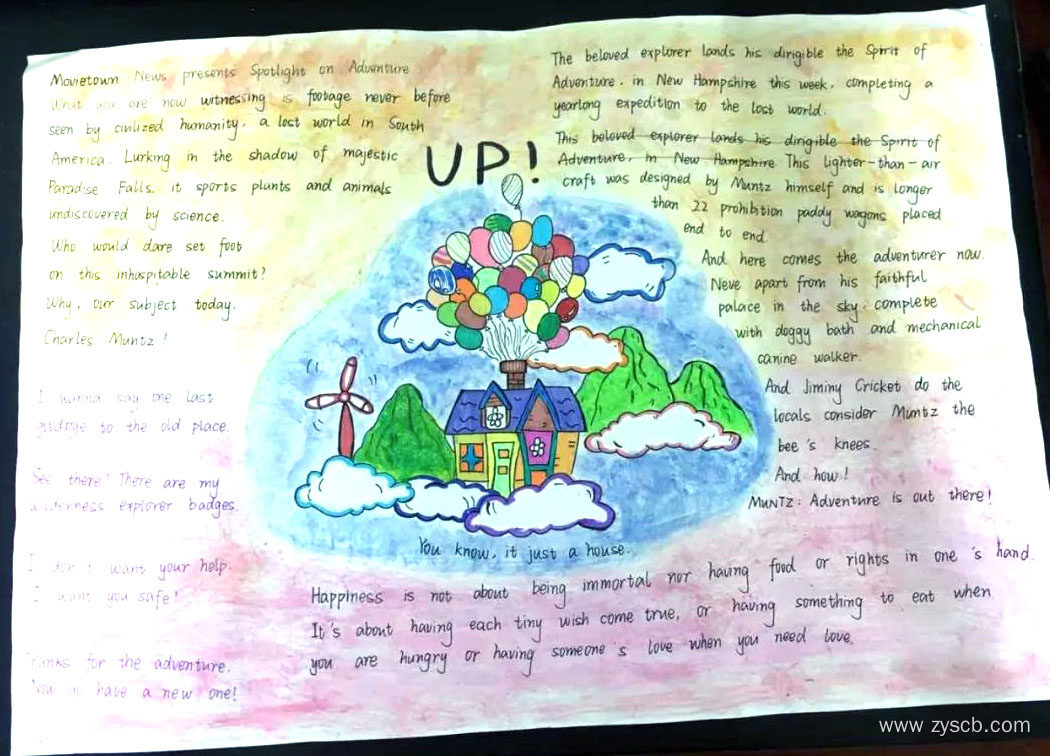 Movietown News presents Spotlight on Adventure
What you are now witnessing is footage never before
seen by civilized humanity. a lost world in South
America. Lurking in the shadow of majestic
Paradise Falls. it sports plants and animals
undiscovered by science.
Who would dare set foot
on this inhospitable summit?
Why, our subject today.
Charles Muntz!
I wanna say one last
goodbye to the old place.
See there? There are my
wilderness explorer badges.
I don't want your help.
I want you safe!
Thanks for the adventure.
You go have a new one!
UP!
The beloved explorer lands his dirigible the Spirit of
Adventure, in New Hampshire this week, completing a
yearlong expedition to the lost world.
This beloved explorer lands his dirigible the Spirit of
Adventure, in New Hampshire This lighter-than-air
craft was designed by Muntz himself and is longer
than 22 prohibition paddy wagons placed
end to end.
And here comes the adventurer now.
Neve apart from his faithful
palace in the sky. complete
with doggy bath and mechanical
canine walker.
And Jiminy Cricket do the
locals consider Muntz the
bee's knees.
And how!
MUNTZ: Adventure is out there!
You know, it just a house.
Happiness is not about being immortal nor having food or rights in one's hand.
It's about having each tiny wish come true, or having something to eat when
you are hungry or having someone's love when you need love.
www.zyscb.com